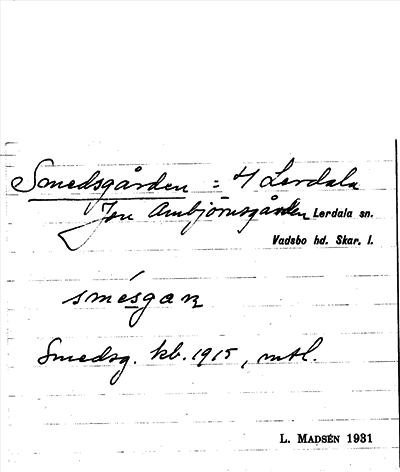 Smedsgården = 4 Lerdala
Jon Ambjörnsgården Lerdala sn.
Vadsbo hd. Skar. l.
smésgaɴ
Smedsg. kb. 1915, mtl.
L. MADSÉN 1931